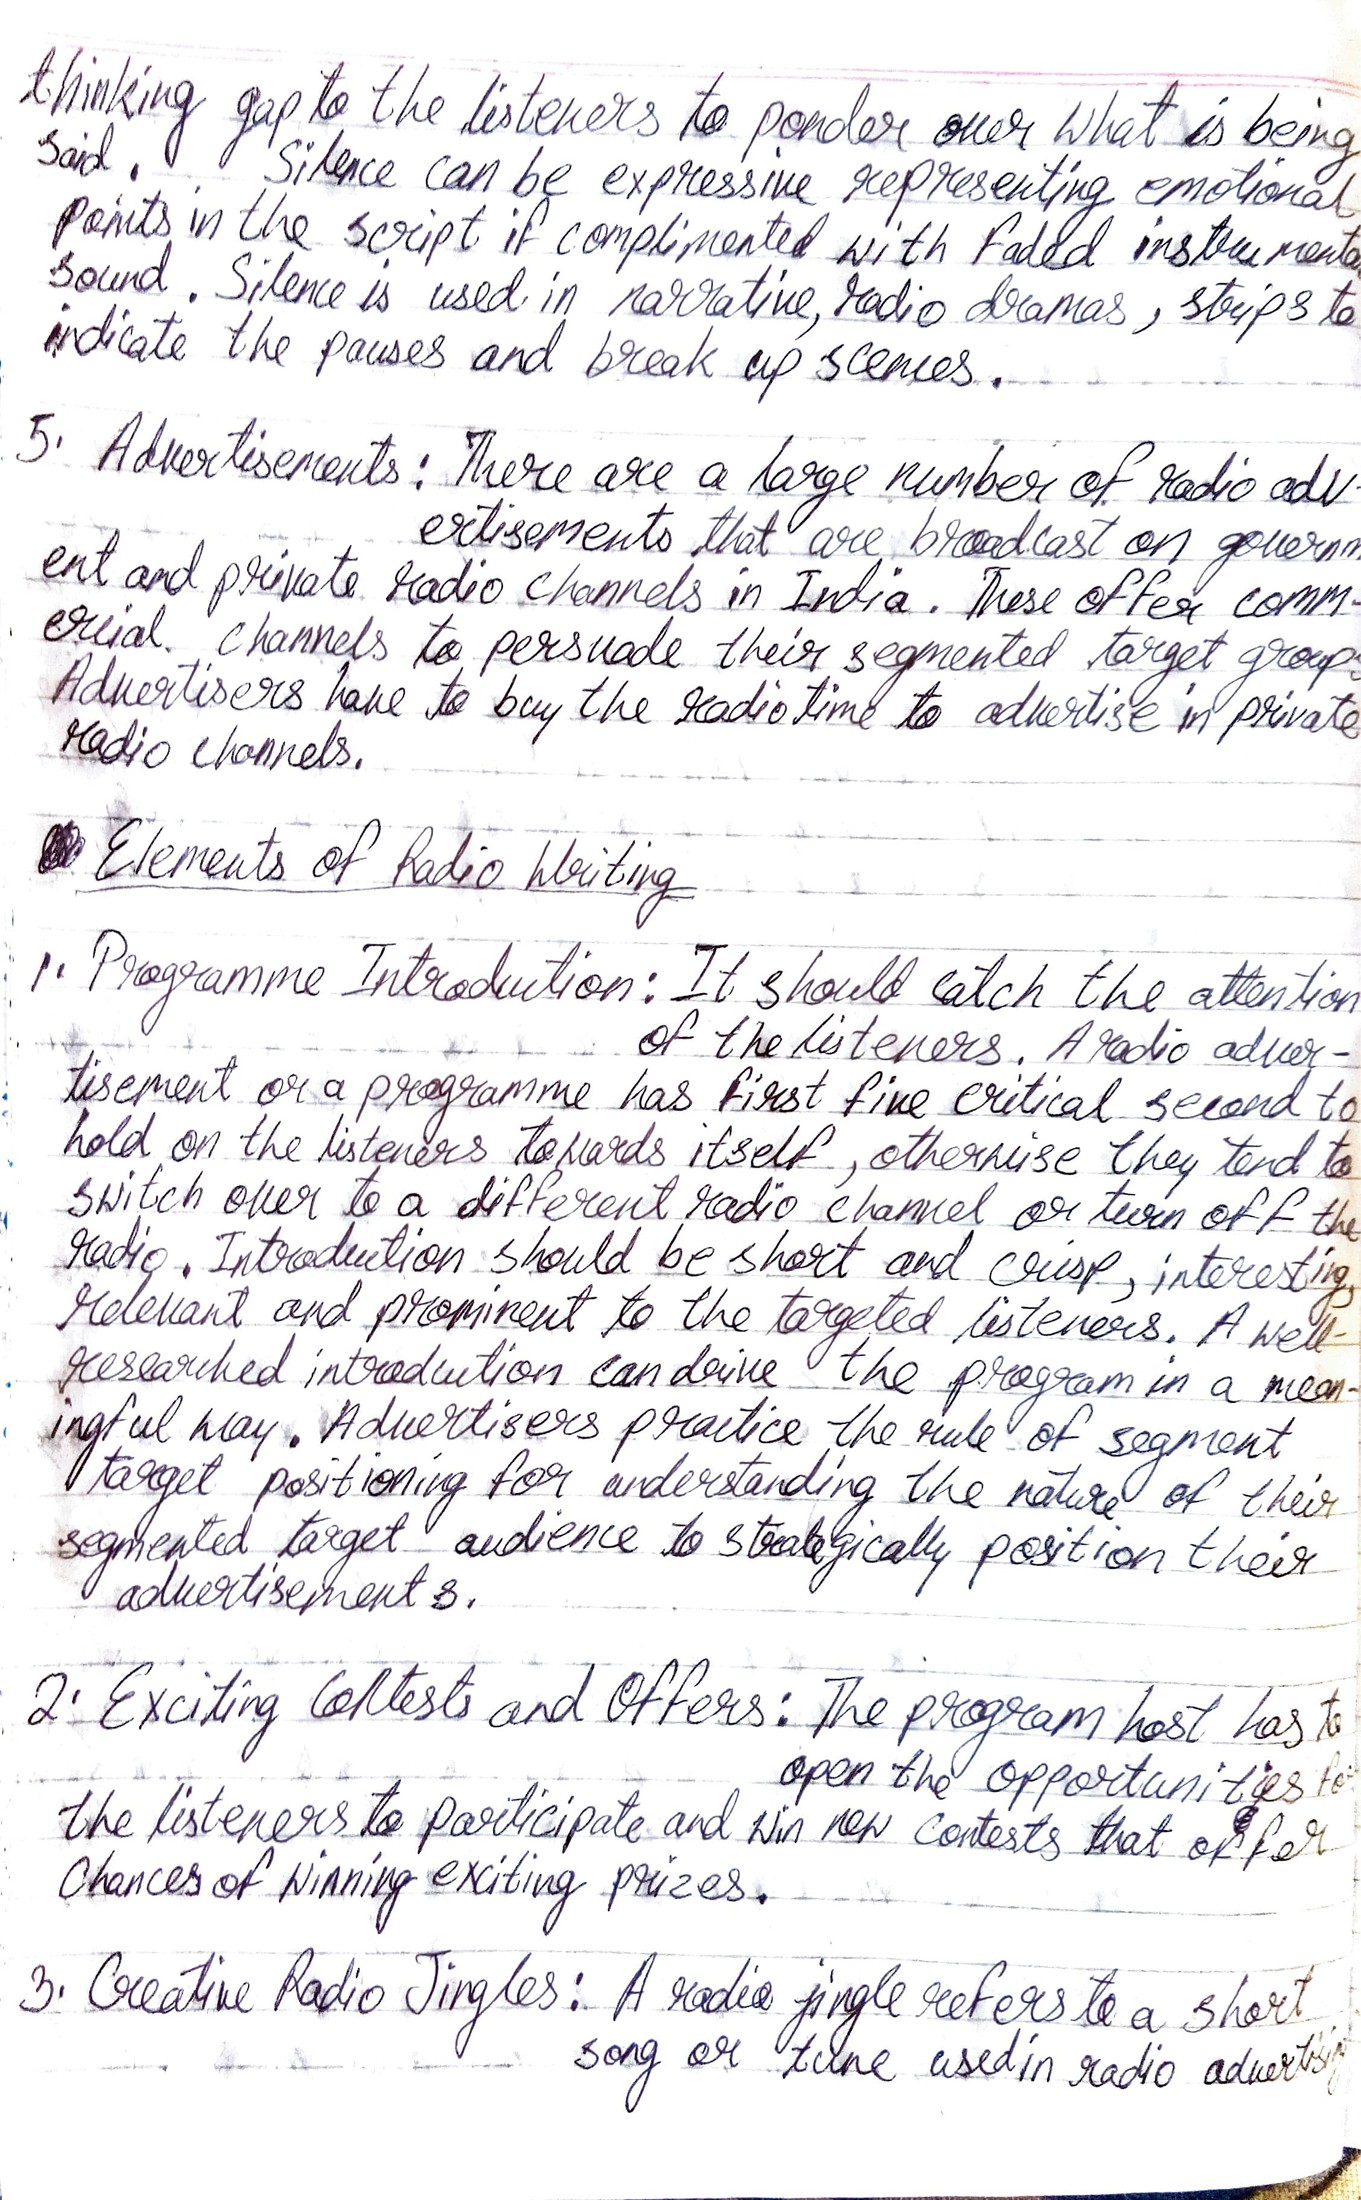 thinking gap to the listeners to ponder over what is being
said. Silence can be expressive representing emotional
points in the script if complimented with faded instrumenta
sound. Silence is used in narrative, radio dramas, strips to
indicate the pauses and break up scenes.
5. Advertisements: There are a large number of radio adv-
ertisements that are broadcast on governm
ent and private radio channels in India. These offer comm-
ercial channels to persuade their segmented target groups
Advertisers have to buy the radio time to advertise in private
radio channels.
Elements of Radio Writing
1. Programme Introduction: It should catch the attention
of the listeners. A radio adver-
tisement or a programme has first five critical second to
hold on the listeners towards itself, otherwise they tend to
switch over to a different radio channel or turn off the
radio. Introduction should be short and crisp, interesting,
relevant and prominent to the targeted listeners. A well-
researched introduction can drive the program in a mean-
ingful way. Advertisers practice the rule of segment
target positioning for understanding the nature of their
segmented target audience to strategically position their
advertisements.
2. Exciting Contests and Offers: The program host has to
open the opportunities for
the listeners to participate and win new contests that offer
chances of winning exciting prizes.
3. Creative Radio Jingles: A radio jingle refers to a short
song or tune used in radio advertising